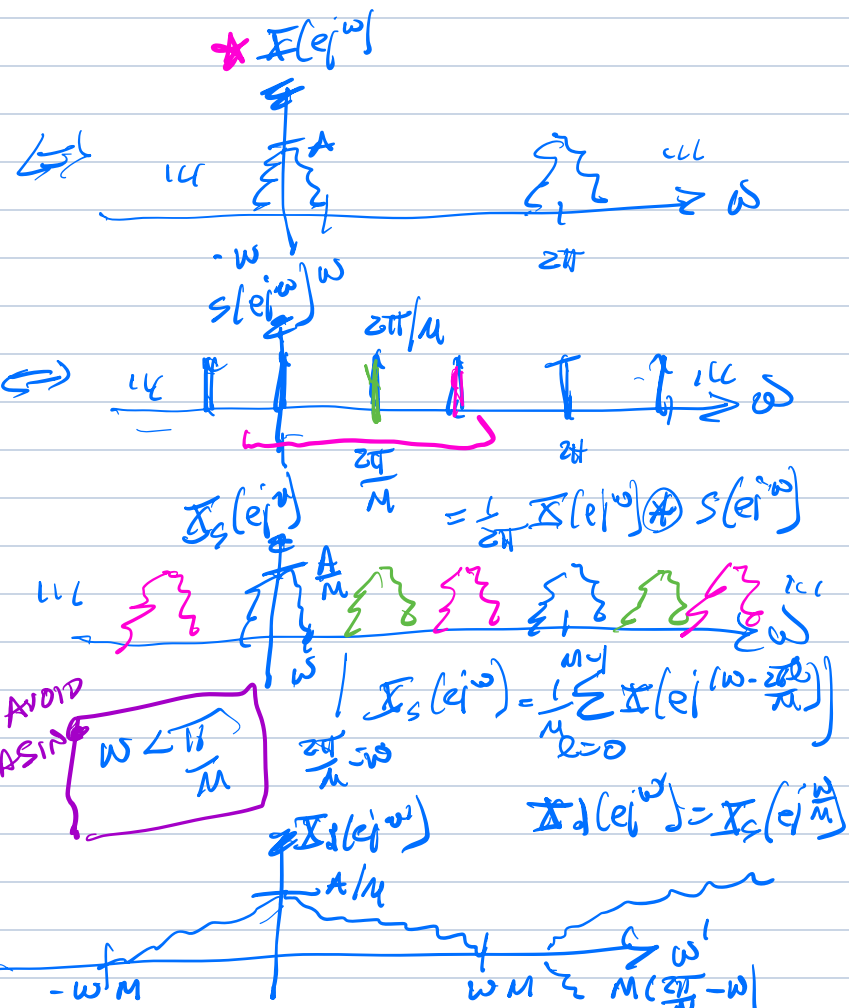 ★ X(e^jω)
A
ω
-W
W
2π
S(e^jω)
2π/M
ω
2π/M
2π
X_s(e^jω) = 1/2π X(e^jω) ⊛ S(e^jω)
A/M
ω
W
2π/M - W
X_s(e^jω) = 1/M Σ_{l=0}^{M-1} X(e^j(ω - 2πl/M))
AVOID
ASING
W < π/M
X_d(e^jω)
X_d(e^jω) = X_s(e^jω/M)
A/M
ω'
-WM
WM
M(2π/M - W)